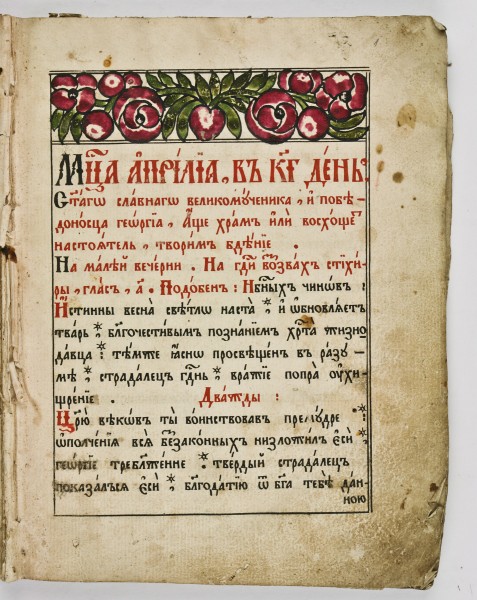 Мц҃а а҆прі́лїа , въ к҃г де́нь :
Ст҃а́гѡ сла́внагѡ великомꙋ́ченика , и҆ побѣ-
доно́сца геѡ́ргїа , А҆́ще хра́м и҆лѝ восхо́щет
настоѧ́тель , твори́м бдѣ́нїе .
На ма́лѣй вече́рни . На гдⷭ҇и воззва́х стїхи́-
ры , гла́с , а҃ . Подо́бен : Нбⷭ҇ных чино́въ :
И҆́стинны весна̀ свѣ́тлѡ наста̀ * и҆ ѡ҆бновлѧ́етъ
тва́рь * бл҃гочести́вым позна́нїем хрⷭ҇та̀ жизно-
да́вца : тѣ́мже ꙗ҆́снѡ просвѣще́н въ ра́зꙋ-
мѣ * страда́лец гдⷭ҇нь * вра́жїе попра̀ ᲂу҆хи-
щре́нїе . Два́жды :
Цр҃ю̀ вѣкѡ́въ ты̀ во́инствовав премꙋ́дре *
ѡ҆полче́нїѧ всѧ̑ беззако́нных низложи́л є҆сѝ *
гео́ргїе требл҃же́нне . тве́рдый страда́лецъ
показа́лъсѧ є҆сѝ * бл҃года́тїю ѿ бг҃а тебѣ̀ да́н-
ною